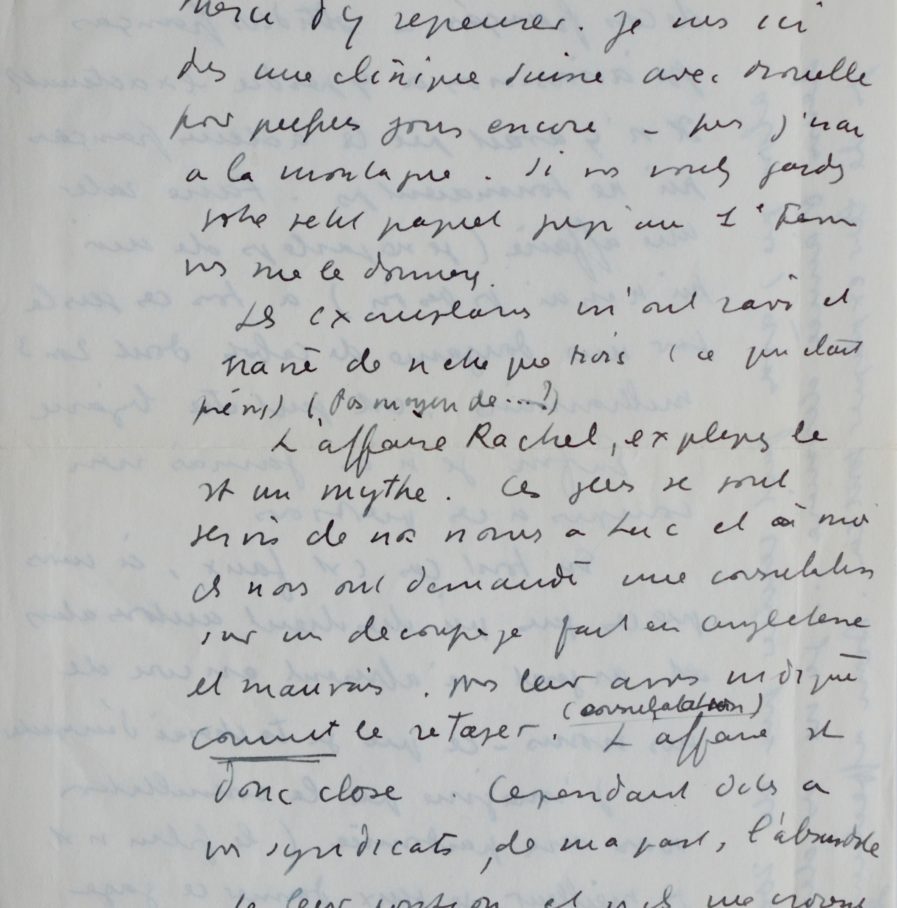 Merci d'y repenser. Je suis ici
ds une clinique suisse avec
pour quelques jours encore – puis j'irai
a la montagne. Si vs voulez garder
votre petit paquet jusqu'au 1er
vs me le donnerez
Les exemplaires m'ont ravi et
navré de n'etre que trois (ce qui était
prévu) (Pas moyen de...?)
L'affaire Rachel, expliquez le
st un mythe. Ces gens se sont
servis de nos noms a Luc et à moi
et nous ont demandé une consultation
sur un decoupage fait en angleterre
et mauvais. nous leur avons indiqué
comment le retaper. (consultation) L'affaire st
donc close. Cependant dites a
vos syndicats, de ma part, l'absurdité
de leur position et s'ils me croient